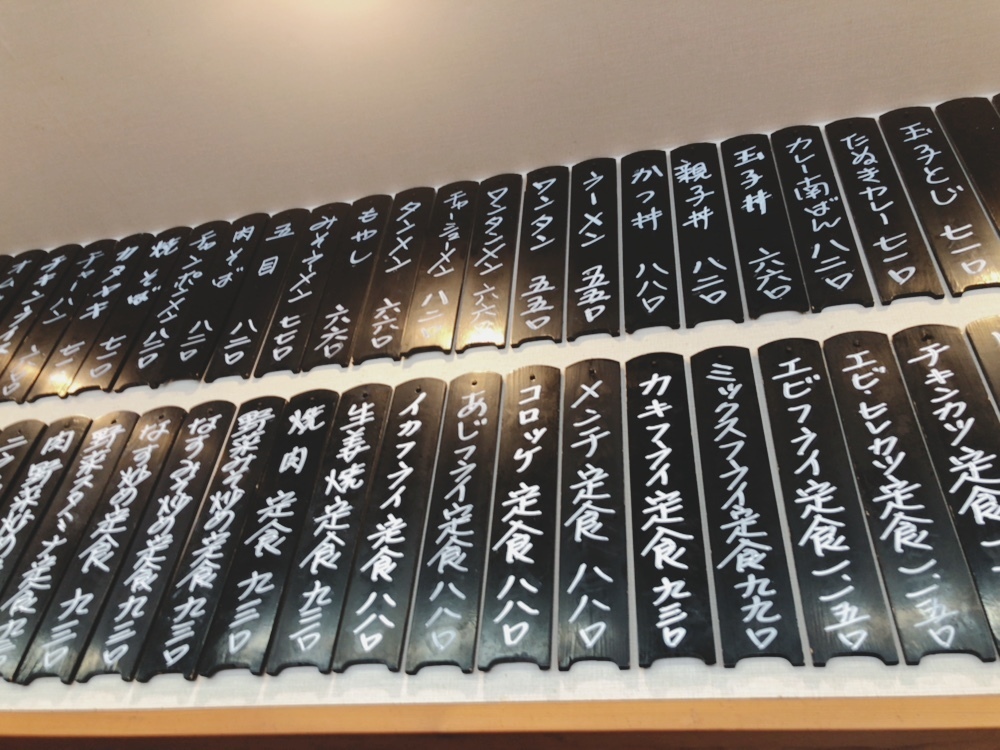 玉子とじ 七一〇
たぬきカレー 七一〇
カレー南ばん 八二〇
玉子丼 六六〇
親子丼 八二〇
かつ丼 八八〇
ラーメン 五五〇
ワンタン 五五〇
ワンタンメン 六六〇
チャーシューメン 八二〇
タンメン 六六〇
もやし 六六〇
みそラーメン 七七〇
五目 八二〇
肉そば 八二〇
焼そば
カタヤキ 七一〇
チャーハン
チキンカツ定食
エビ・ヒレカツ定食 一、一五〇
エビフライ定食 一、一五〇
ミックスフライ定食 九九〇
カキフライ定食 九三〇
メンチ定食 八八〇
コロッケ定食 八八〇
あじフライ定食 八八〇
イカフライ定食 八八〇
生姜焼定食 九三〇
焼肉定食 九三〇
野菜みそ炒め定食 九三〇
なすみそ炒め定食 九三〇
なす炒め定食 九三〇
野菜炒め定食 九三〇
肉野菜炒め